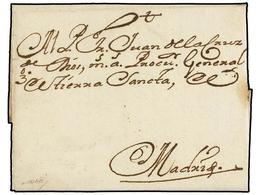 M. P. Fr. Juan de la Cruz
de Dios, m.s.a. Procu.r General
de Tierra Sancta, &
Madrid.